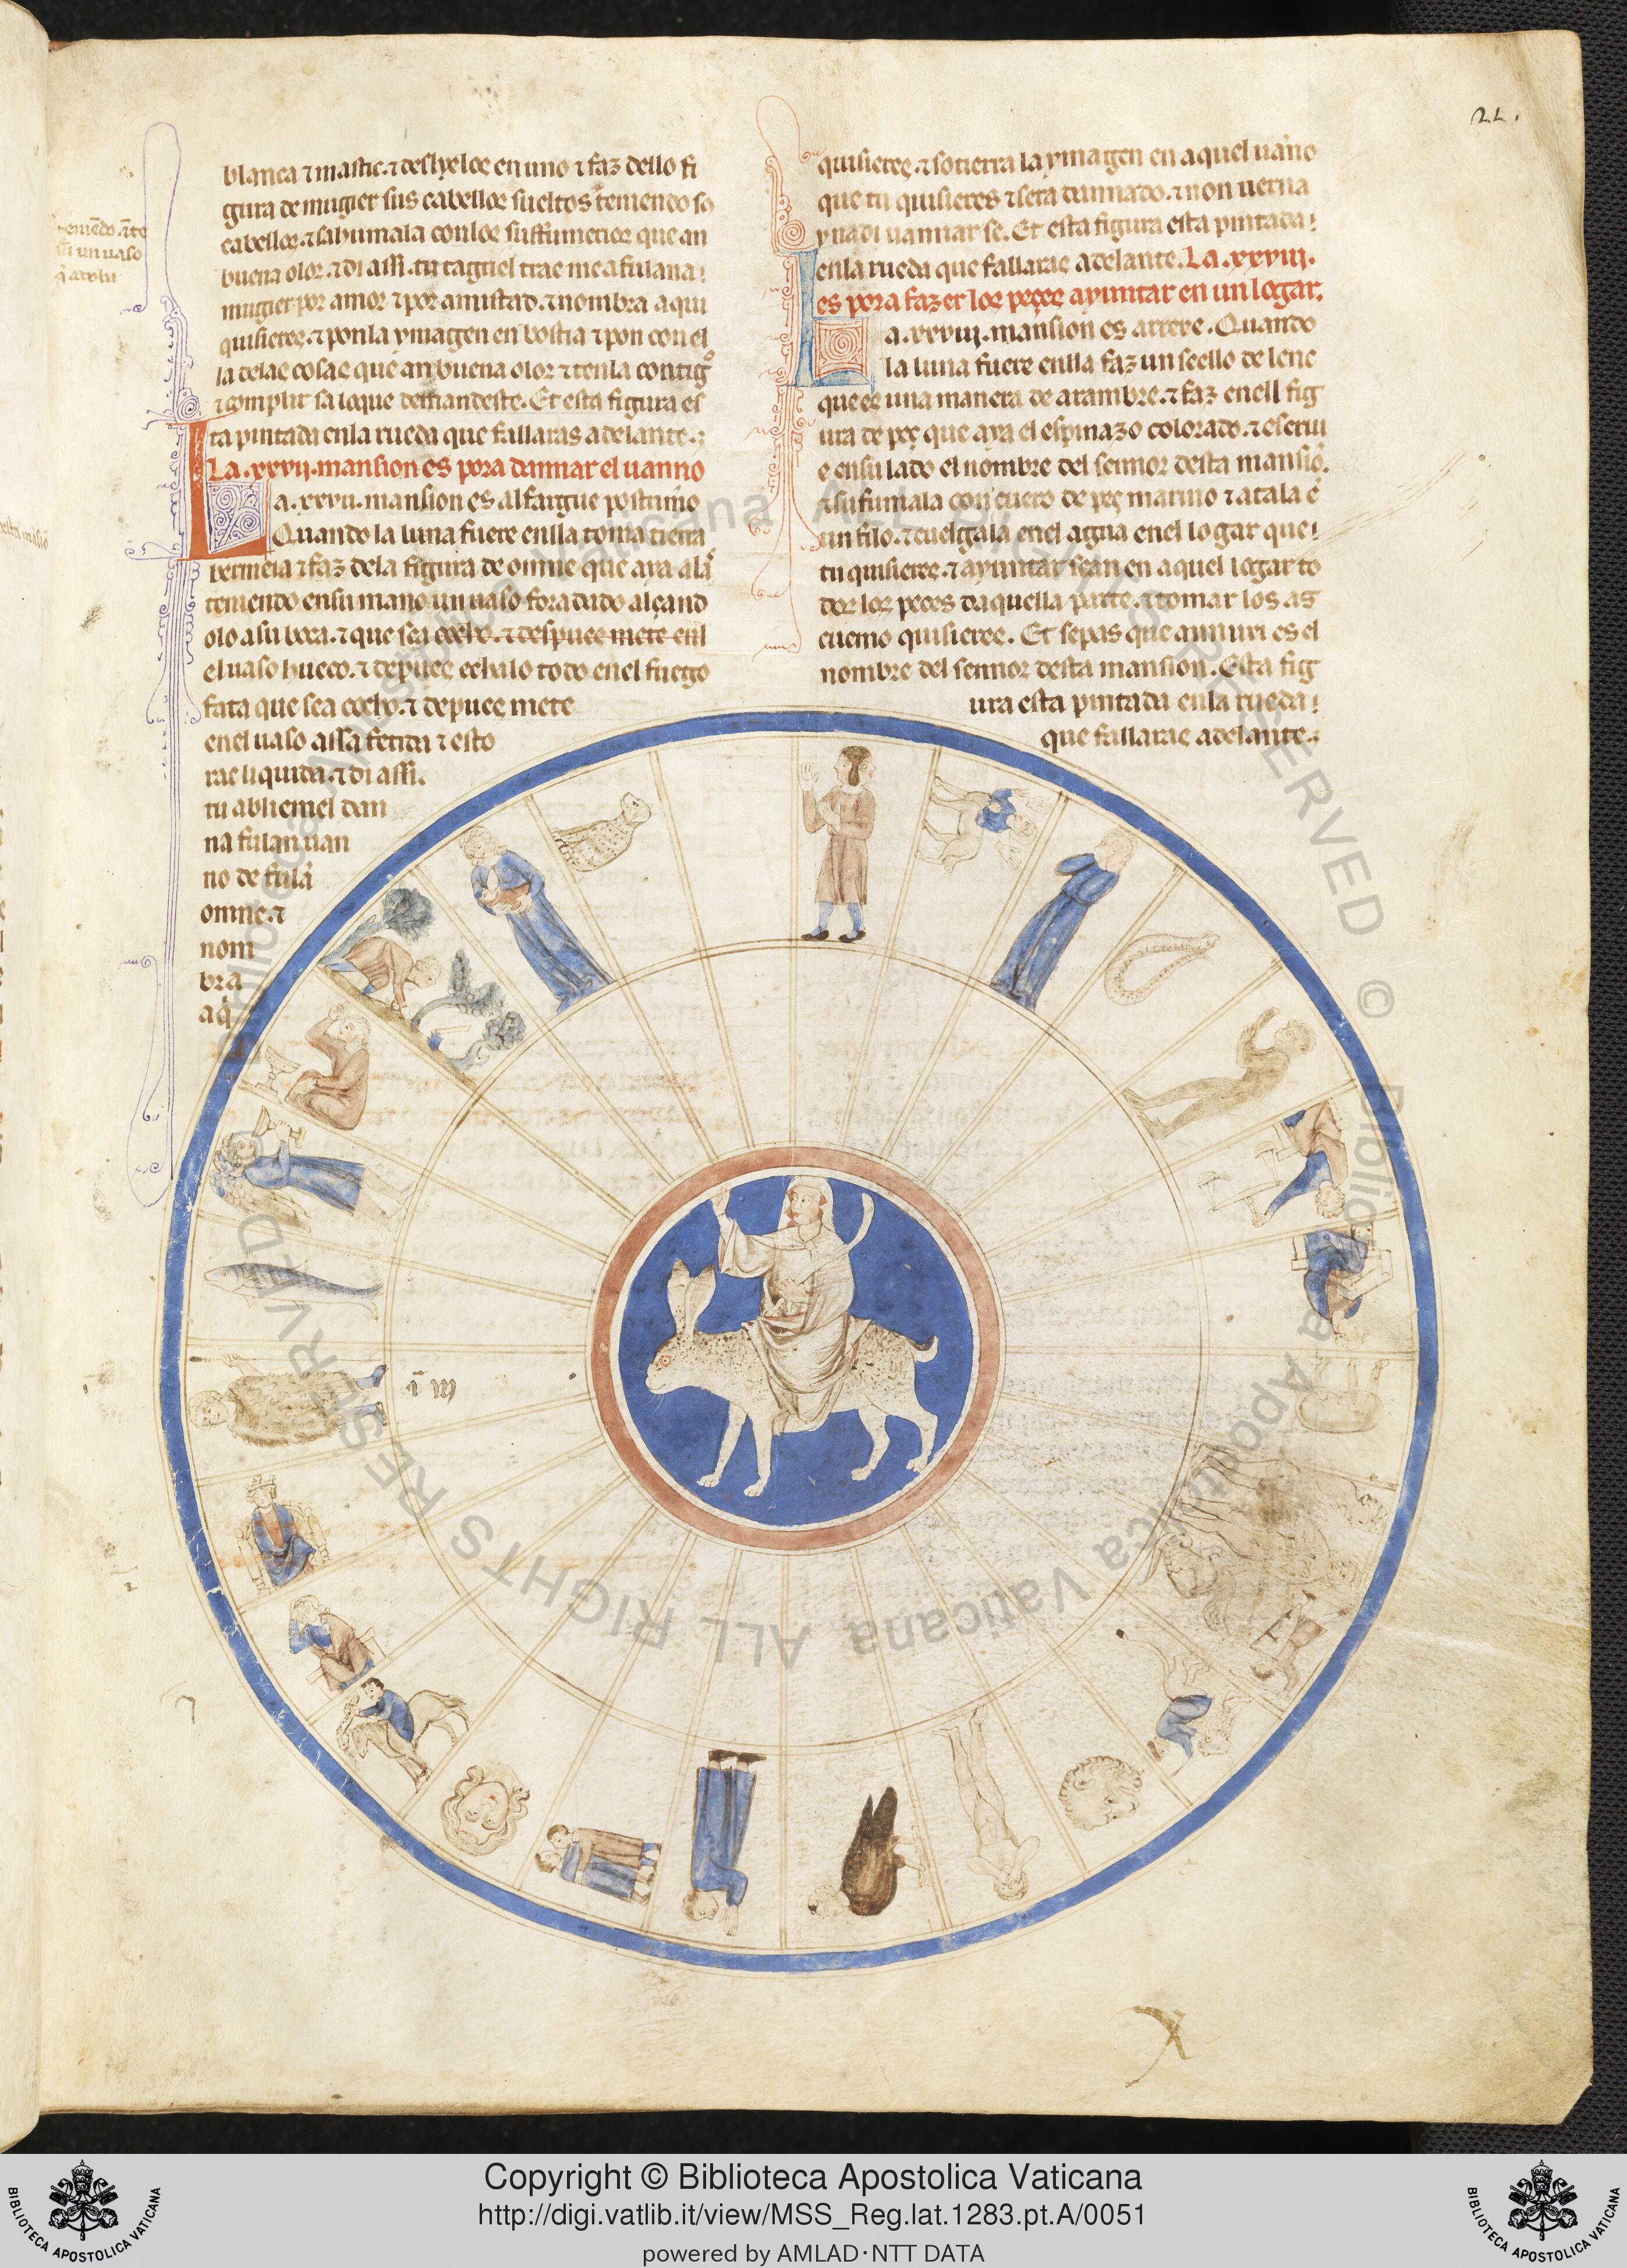 22.
blanca ⁊ mastic. ⁊ deslyelos en uno ⁊ faz dello fi
gura de mugier sus cabellos sueltos teniendo so
cabellos. ⁊ sahumala con los suffumerios que an
buena olor. ⁊ di assi. tu tagriel trae me a fulana
mugier por amor ⁊ por amistad. ⁊ nombra a qui
quisieres. ⁊ pon la ymagen en bostia ⁊ pon con el
la delas cosas que an buena olor ⁊ ten la contigo
⁊ complir sa lo que demandeste. Et esta figura es
ta pintada en la rueda que fallaras adelante.
La .xxvij. mansion es pora dannar el uanno
La .xxvij. mansion es alfargue postrimo
Quando la luna fuere en lla toma tierra
bermeia ⁊ faz della figura de omne que aya alas
teniendo en su mano un uaso foradado alçand
olo a su boca. ⁊ que sea cocho. ⁊ despues mete en l
el uaso hueco. ⁊ depues echalo todo en el fuego
fata que sea cocho. ⁊ depues mete
en el uaso assa fetida ⁊ esto
rac liquida. ⁊ di assi.
tu abliemel dan
na fulan uan
no de fulā
omne. ⁊
nom
bra
a q̄
teniēdo ante
si un uaso
quisieres. ⁊ sotierra la ymagen en aquel uanno
que tu quisieres ⁊ sera dannado. ⁊ non uerna
y nadi uannar se. Et esta figura esta pintada
en la rueda que fallaras adelante. La .xxviij.
es pora fazer los peçes ayuntar en un logar.
La .xxviij. mansion es arrexe. Quando
la luna fuere en lla faz un seello de lene
que es una manera de arambre. ⁊ faz en ell fig
ura de peç que aya el espinazo colorado. ⁊ escriu
e en su lado el nombre del sennor desta mansiō.
⁊ sufumala con cuero de peç marino ⁊ atala ē
un filo. ⁊ cuelgala en el agua en el logar que
tu quisieres. ⁊ ayuntar sean en aquel logar to
dos los peces daquella parte. ⁊ tomar los as
cuemo quisieres. Et sepas que annuxi es el
nombre del sennor desta mansion. Esta fig
ura esta pintada en la rueda
que fallaras adelante.
Copyright © Biblioteca Apostolica Vaticana
http://digi.vatlib.it/view/MSS_Reg.lat.1283.pt.A/0051
powered by AMLAD·NTT DATA
BIBLIOTECA APOSTOLICA VATICANA
BIBLIOTECA APOSTOLICA VATICANA
Biblioteca Apostolica Vaticana ALL RIGHTS RESERVED © Biblioteca Apostolica Vaticana ALL RIGHTS RESERVED ©